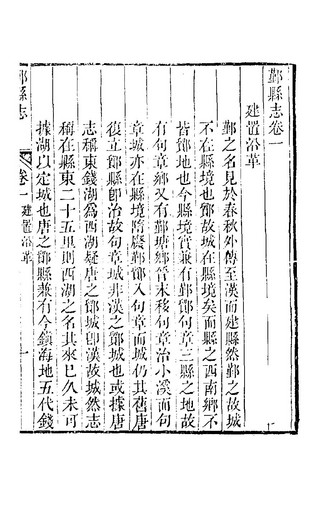 鄞縣志卷一
建置沿革
鄞之名見於春秋外傳至漢而建縣然鄞之故城
不在縣境也鄮故城在縣境矣而縣之西南鄉不
皆鄮地也今縣境實兼有鄞鄮句章三縣之地故
有句章鄉又有鄞塘鄉晉末移句章治小溪而句
章城亦在縣境隋廢鄞鄮入句章而城仍其舊唐
復立鄮縣卽治故句章城非漢之鄮城也或據唐
志稱東錢湖爲西湖疑唐之鄮城卽漢故城然志
稱在縣東二十五里則西湖之名其來已久未可
據湖以定城也唐之鄮縣兼有今鎭海地五代錢
鄞縣志
卷一 建置沿革
一